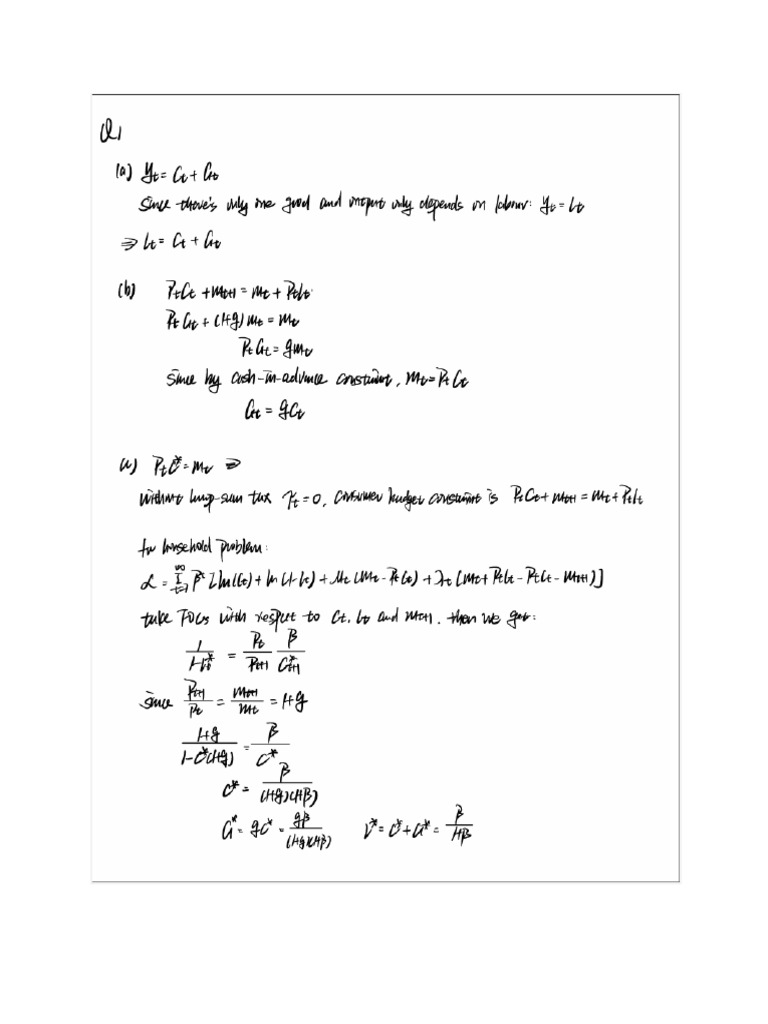 Q1
(a) yt = Ct + Gt
Since there's only one good and output only depends on labour: yt = Lt
⇒ Lt = Ct + Gt
(b) PtCt + mt+1 = mt + PtLt.
PtCt + (1+g)mt = mt
PtGt = gmt
Since by cash-in-advance constraint, mt = PtCt
Gt = gCt
(c) PtC* = mt ⇒
without lump-sum tax τt = 0, consumer budget constraint is PtCt + mt+1 = mt + PtLt
for household problem:
L = Σ_{t=1}^{∞} β^t [ln(Ct) + ln(1-Lt) + μt(mt - PtCt) + λt(mt + PtLt - PtCt - mt+1)]
take FOCs with respect to Ct, Lt and mt+1. then we get:
1/(1-Lt*) = Pt/Pt+1 β/C*t+1
since Pt+1/Pt = mt+1/mt = 1+g
(1+g)/(1-C*(1+g)) = β/C*
C* = β/((1+g)(1+β))
G* = gC* = gβ/((1+g)(1+β)) L* = C* + G* = β/(1+β)